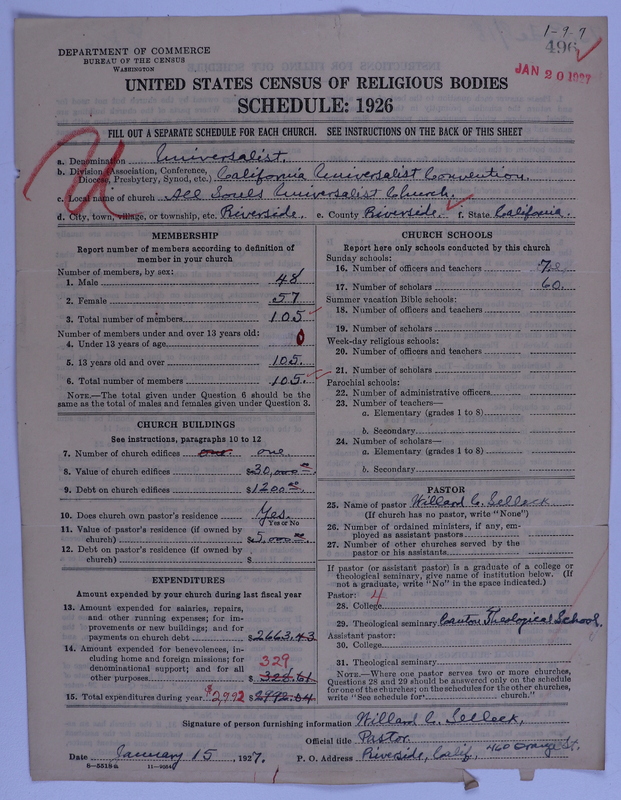 1-9-7
496
JAN 20 1927
DEPARTMENT OF COMMERCE
BUREAU OF THE CENSUS
WASHINGTON
UNITED STATES CENSUS OF RELIGIOUS BODIES
SCHEDULE: 1926
FILL OUT A SEPARATE SCHEDULE FOR EACH CHURCH. SEE INSTRUCTIONS ON THE BACK OF THIS SHEET
U
a. Denomination Universalist.
b. Division (Association, Conference, Diocese, Presbytery, Synod, etc.) California Universalist Convention.
c. Local name of church All Souls Universalist Church.
d. City, town, village, or township, etc. Riverside. e. County Riverside. f. State California.
MEMBERSHIP
Report number of members according to definition of
member in your church
Number of members, by sex:
1. Male 48
2. Female 57
3. Total number of members 105
Number of members under and over 13 years old:
4. Under 13 years of age 0
5. 13 years old and over 105.
6. Total number of members 105.
NOTE.—The total given under Question 6 should be
same as the total of males and females given under Question 3.
CHURCH BUILDINGS
See instructions, paragraphs 10 to 12
7. Number of church edifices one. one.
8. Value of church edifices $30,000 00
9. Debt on church edifices $1200 00
10. Does church own pastor's residence Yes.
Yes or No
11. Value of pastor's residence (if owned by
church) $5,000 00
12. Debt on pastor's residence (if owned by
church) $
EXPENDITURES
Amount expended by your church during last fiscal year
13. Amount expended for salaries, repairs,
and other running expenses; for im-
provements or new buildings; and for
payments on church debt $2663.43
14. Amount expended for benevolences, in-
cluding home and foreign missions; for
denominational support; and for all 329
other purposes $328.61
15. Total expenditures during year $2992 $2992.04
CHURCH SCHOOLS
Report here only schools conducted by this church
Sunday schools:
16. Number of officers and teachers 7
17. Number of scholars 60.
Summer vacation Bible schools:
18. Number of officers and teachers
19. Number of scholars
Week-day religious schools:
20. Number of officers and teachers
21. Number of scholars
Parochial schools:
22. Number of administrative officers
23. Number of teachers—
a. Elementary (grades 1 to 8)
b. Secondary
24. Number of scholars—
a. Elementary (grades 1 to 8)
b. Secondary
PASTOR
25. Name of pastor Willard C. Selleck
(If church has no pastor, write "None")
26. Number of ordained ministers, if any, em-
ployed as assistant pastors
27. Number of other churches served by the
pastor or his assistants
If pastor (or assistant pastor) is a graduate of a college or
theological seminary, give name of institution below. (If
not a graduate, write "No" in the space indicated.)
Pastor: 4
28. College
29. Theological seminary Canton Theological School.
Assistant pastor:
30. College
31. Theological seminary
NOTE.—Where one pastor serves two or more churches,
Questions 28 and 29 should be answered only on the schedule
for one of the churches; on the schedules for the other churches,
write "See schedule for church."
Signature of person furnishing information Willard C. Selleck,
Official title Pastor.
Date January 15, 1927. P. O. Address Riverside, Calif, 460 Orange St.
8-5518a 11-9254